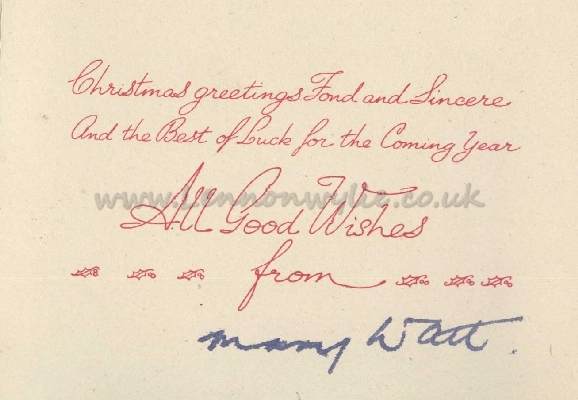 Christmas greetings Fond and Sincere
And the Best of Luck for the Coming Year
www.Lennonwylie.co.uk
All Good Wishes
from
Mary Watt.